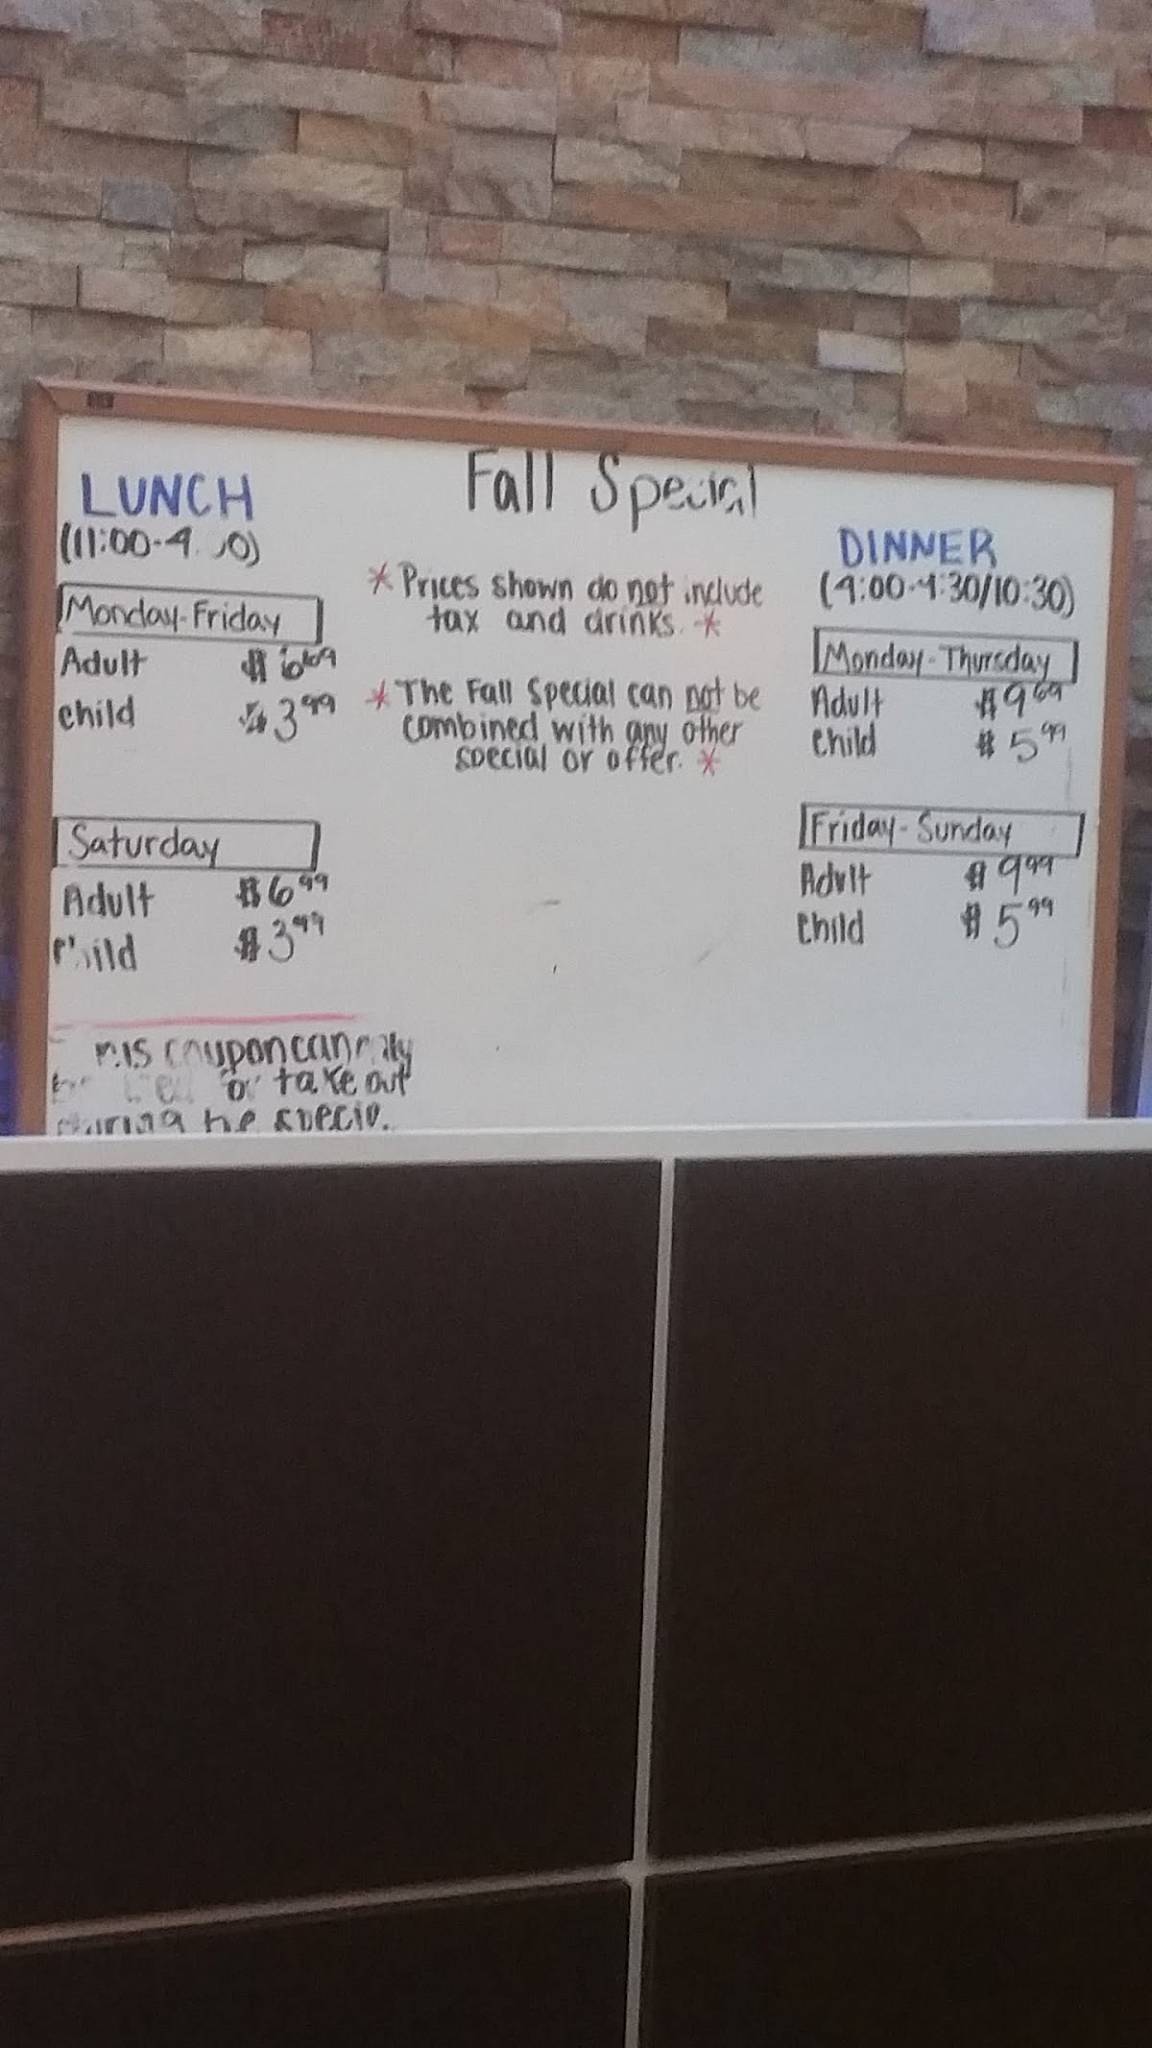 Fall Special
LUNCH
Monday-Friday
Adult $6 69
child $3 99
Saturday
Adult $6 99
Child $3 99
coupon can
take out
* Prices shown do not include
tax and drinks. *
* The Fall Special can not be
combined with any other
special or offer. *
DINNER
(4:00-9:30/10:30)
Monday-Thursday
Adult $9 69
Child $5 99
Friday-Sunday
Adult $9 99
Child $5 99